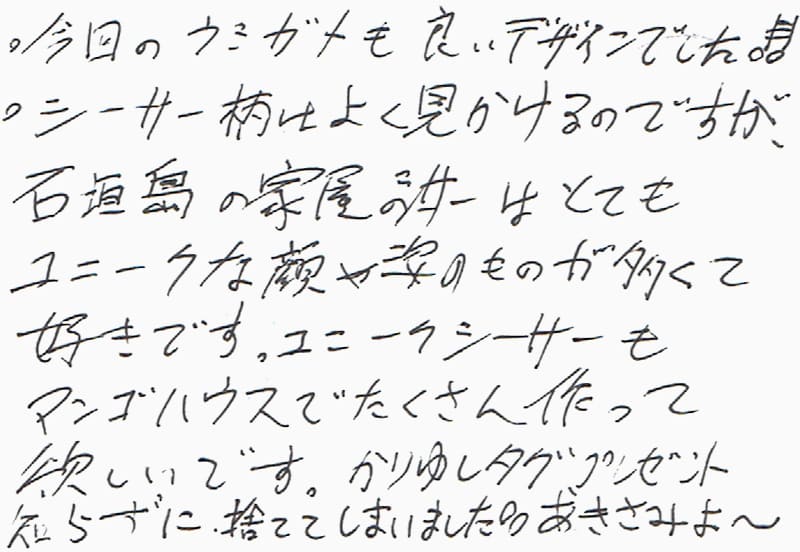 。今回のウミガメも良いデザインでした。!!
。シーサー柄はよく見かけるのですが、
石垣島の家屋のシーサーはとても
ユニークな顔や姿のものが多くて
好きです。ユニークシーサーも
マンゴハウスでたくさん作って
欲しいです。かりゆしタグプレゼント
知らずに、捨ててしまいました あきさみよ〜